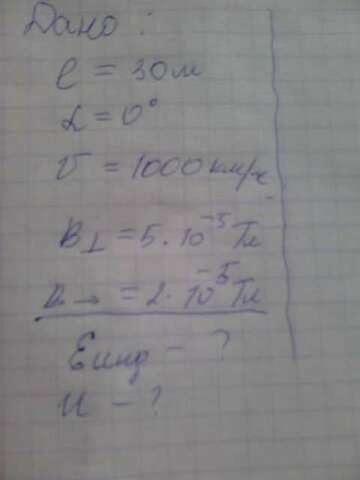 Дано:
l = 30 м
α = 0°
v = 1000 км/ч
B⊥ = 5 · 10⁻⁵ Тл
B→ = 2 · 10⁻⁵ Тл
Eинд – ?
U – ?